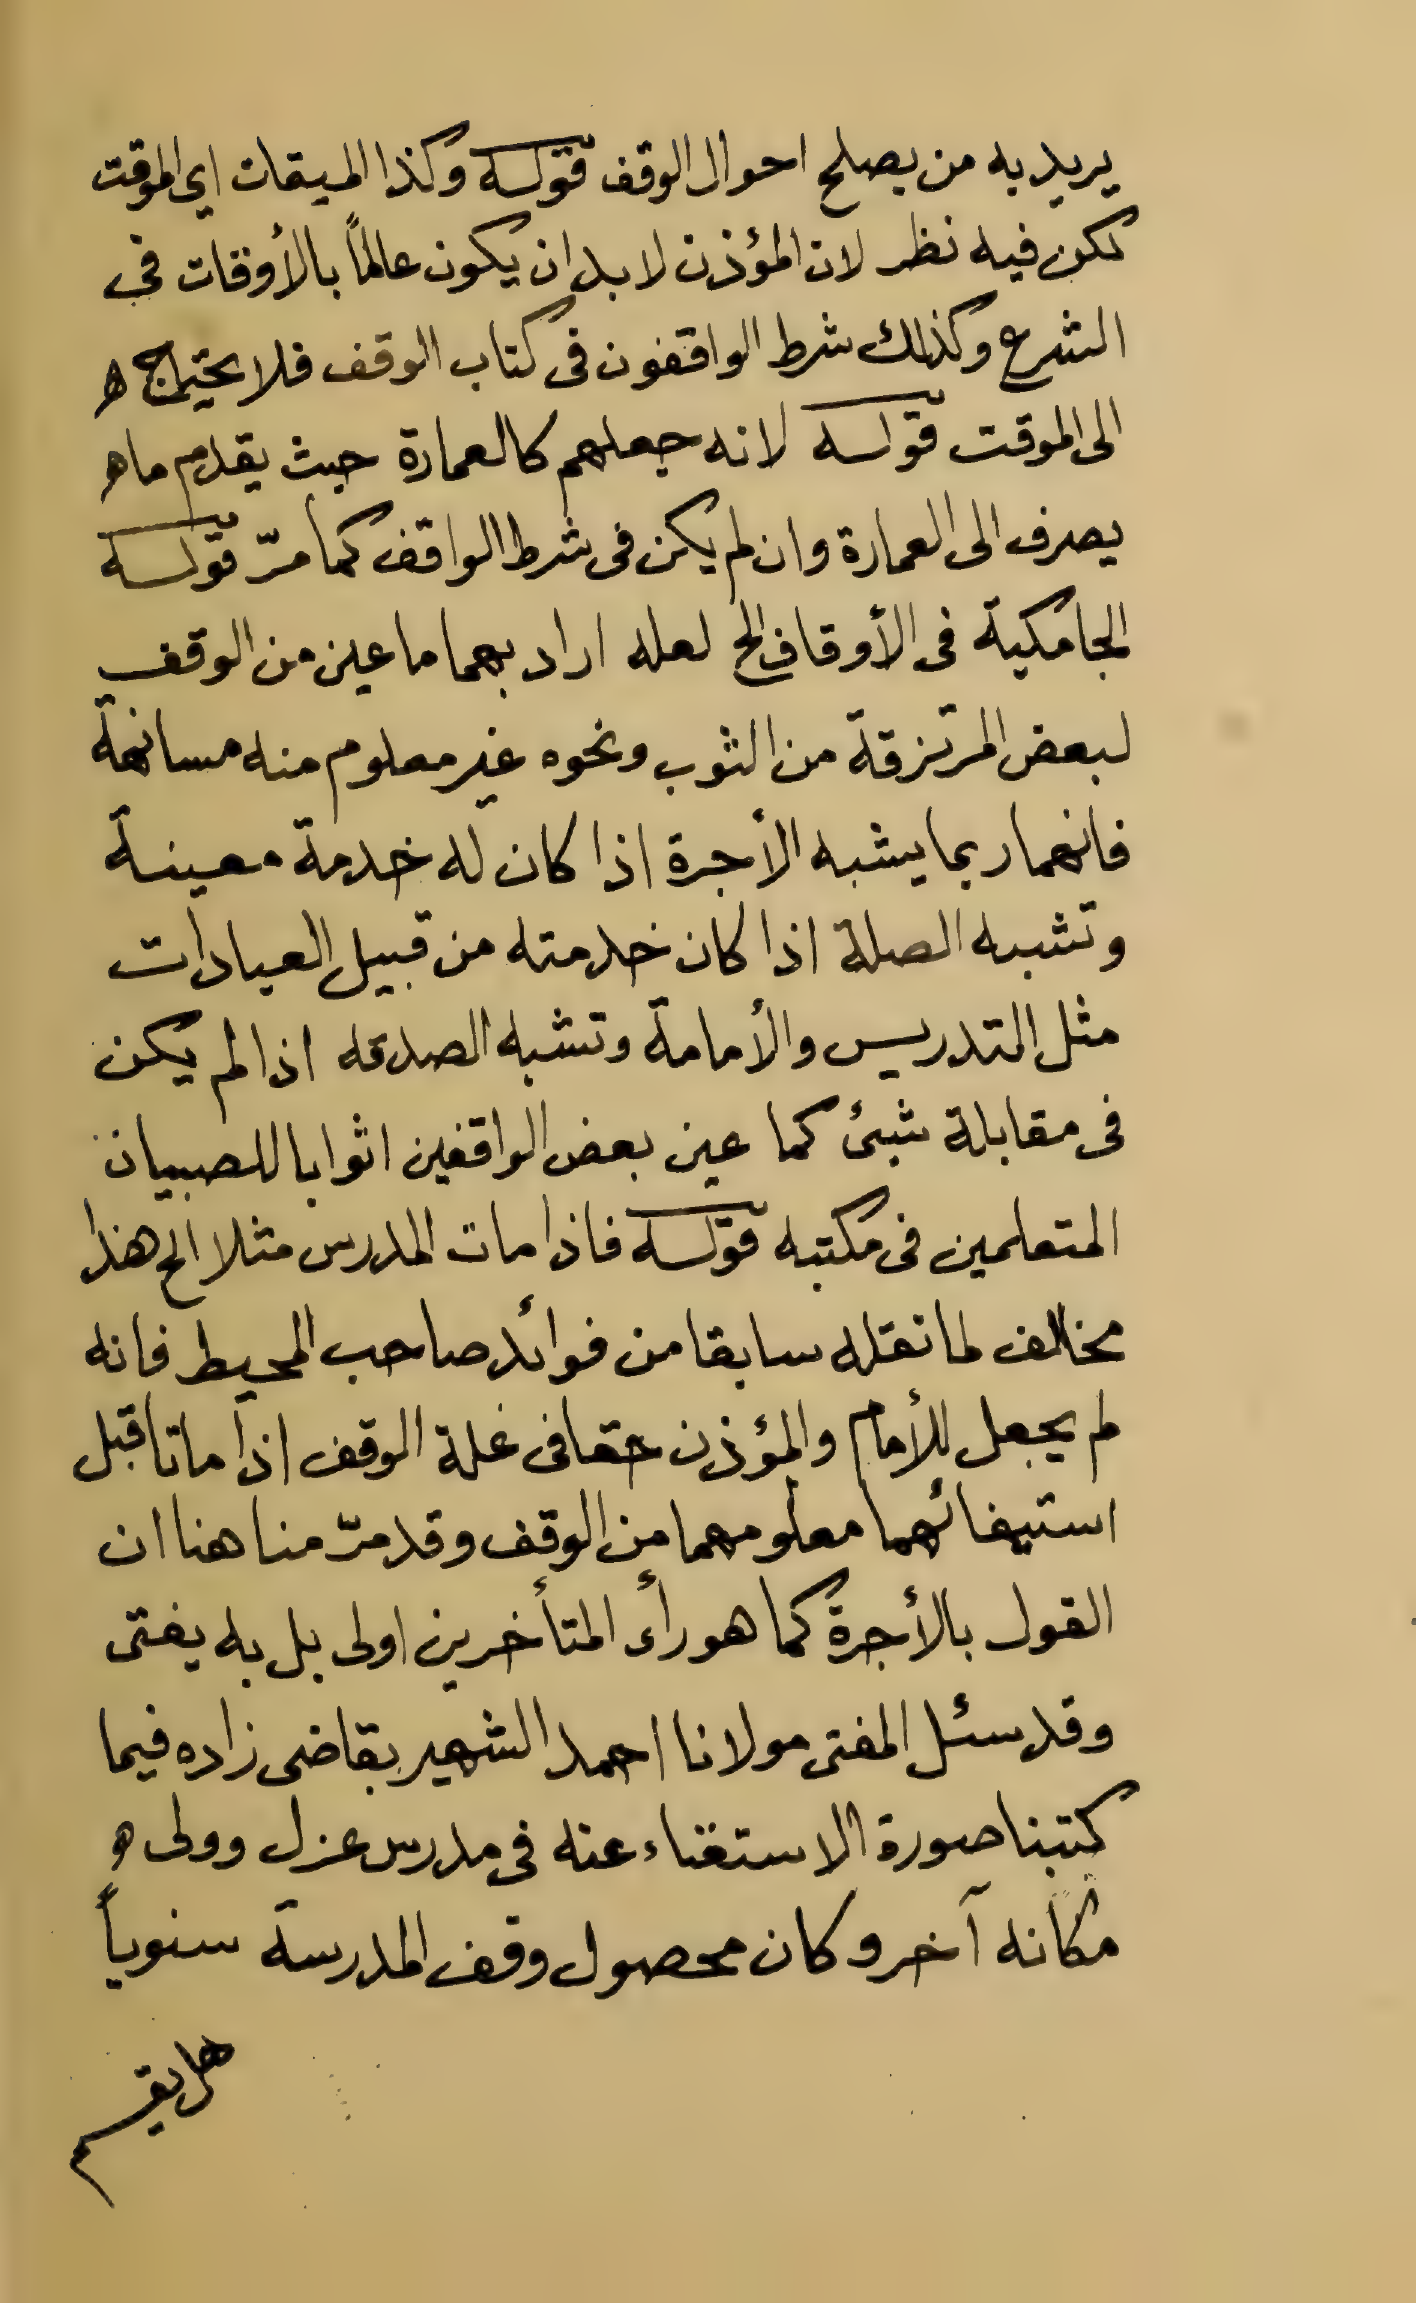 يريد به من يصلح احوال الوقف قوله وكذا الميقات اي الموقت
لكن فيه نظر لان المؤذن لا بد ان يكون عالماً بالأوقات في
الشرع وكذلك شرط الواقفون في كتاب الوقف فلا يحتاج ه
الى الموقت قوله لانه جعلهم كالعمارة حيث يقدم ما ه
يصرف الى العمارة وان لم يكن في شرط الواقف كما مرّ قوله
الجامكية في الأوقاف الخ لعله اراد بهما ما عين من الوقف
لبعض المرتزقة من الثوب ونحوه غير معلوم منه مسانهة
فانهما ربما يشبه الأجرة اذا كان له خدمة معينة
وتشبه الصلة اذا كان خدمته من قبيل العبادات
مثل التدريس والأمامة وتشبه الصدقه اذا لم يكن
في مقابلة شيئ كما عين بعض الواقفين اثوابا للصبيان
المتعلمين في مكتبه قوله فاذا مات المدرس مثلا الخ هذا
مخالف لما نقله سابقا من فوائد صاحب المحيط فانه
لم يجعل للأمام والمؤذن حقا في غلة الوقف اذا ماتا قبل
استيفائهما معلومهما من الوقف وقد مرّ منا هنا ان
القول بالأجرة كما هو رأى المتأخرين اولى بل به يفتى
وقد سئل المفتى مولانا احمد الشهير بقاضي زاده فيما
كتبنا صورة الاستغناء عنه في مدرس عزل وولى ه
مكانه آخر وكان محصول وقف المدرسة سنوياً
هل يقسم